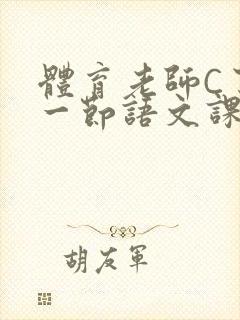 體育老師C了
一節語文課
胡友軍